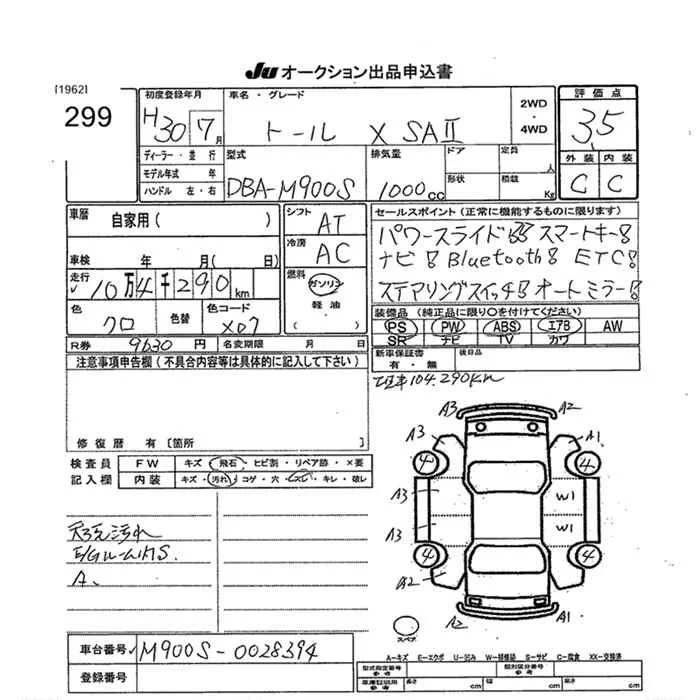 JU オークション出品申込書
[1962]
299
初度登録年月
H30 7月
車名・グレード
トール X SAⅡ
2WD
・
4WD
評価点
3.5
外装 内装
C C
ディーラー・並行
モデル年式 年
ハンドル 左・右
型式
DBA-M900S
排気量
1000cc
ドア
形状
定員 人
積載 Kg
車歴 自家用( )
車検 年 月( 日)
走行
10万4千290km
色
クロ
色替
色コード
X07
シフト
AT
冷房
AC
燃料
ガソリン
軽油
( )
セールスポイント(正常に機能するものに限ります)
パワースライドドア! スマートキー!
ナビ! Bluetooth! ETC!
ステアリングスイッチ! オートミラー!
装備品(純正品に限り○を付けてください)
PS PW ABS エアB AW
SR ナビ TV カワ
R券 9630円 名変期限 月 日
新車保証書
有・無
後日品
注意事項申告欄(不具合内容等は具体的に記入して下さい)
104.290km
修復歴 有〔箇所 〕
検査員
記入欄
FW キズ・飛石・ヒビ割・リペア跡・×要
内装 キズ・汚れ・コゲ・穴・スレ・キレ・破レ
A3 A2
A3 A1
4 4
A3 W1
A3 W1
4 4
A2
A2 A1
スペア
車台番号 M900S-0028394
登録番号
A-キズ E-エクボ U-凹み W-補修跡 S-サビ C-腐食 XX-交換済
型式指定番号
参考
類別区分番号
参考
車庫証明用
参考
長さ cm 幅 cm 高さ cm